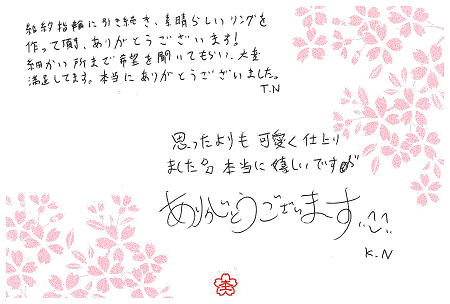 結婚指輪に引き続き、素晴らしいリングを
作って頂、ありがとうございます!
細かい所まで希望を聞いてもらい、大変
満足してます。本当にありがとうございました。
T.N
思ったよりも可愛く仕上り
ました 本当に嬉しいですが
ありがとうございます
K.N